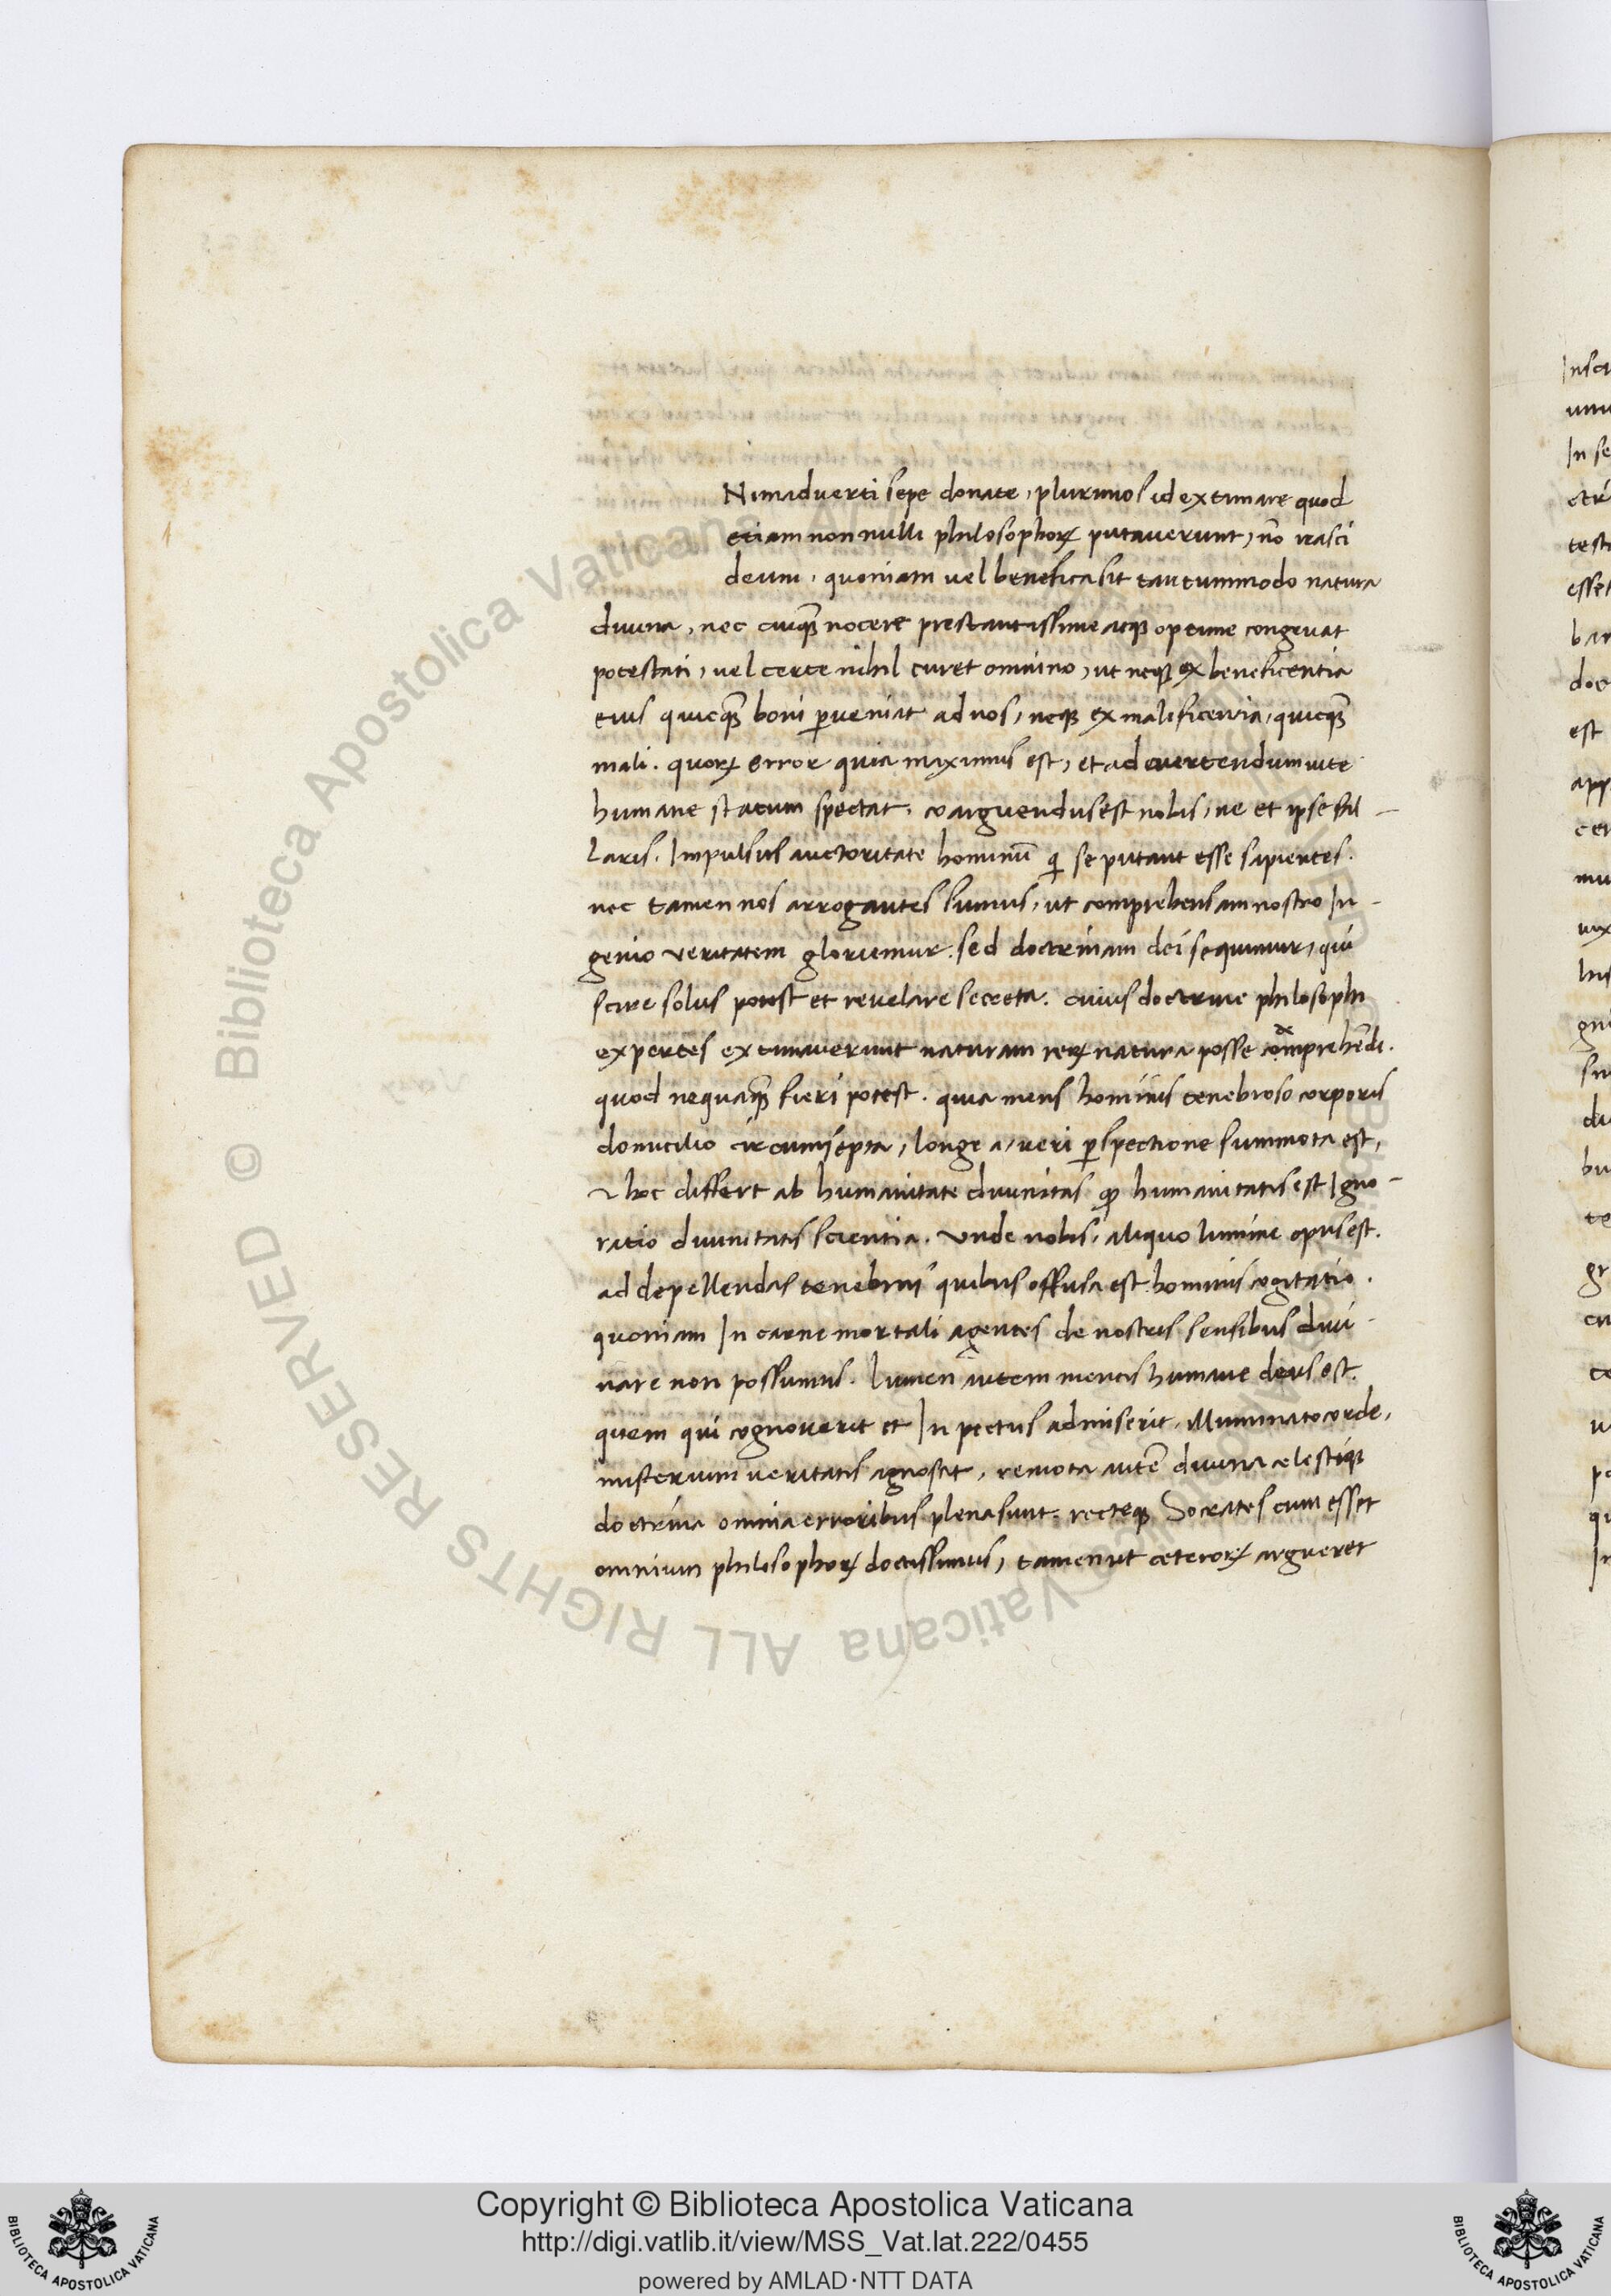 Nimadverti sepe donate, plurimos id extimare quod
etiam non nulli philosophoꝝ putaverunt, nō irasci
deum, quoniam vel benefica sit tantummodo natura
divina, nec cuiqꝫ nocere prestantissime atqꝫ optime congruat
potestati, vel certe nihil curet omnino, ut neqꝫ ex beneficentia
eius quicqꝫ boni ꝑveniat ad nos, neqꝫ ex maleficentia, quicqꝫ
mali. quoꝝ error quia maximus est, et ad evertendum vite
humane statum spectat, coarguendus est nobis, ne et ipse fal-
laris. Impulsus auctoritate hominū qi se putant esse sapientes.
nec tamen nos arrogantes sumus, ut comprehensam nostro In-
genio veritatem gloriemur. sed doctrinam dei sequimur, qui
scire solus potest et revelare secreta. cuius doctrine philosophi
expertes extimaverunt naturam reꝝ natura posse comprehēdi.
quod nequaqꝫ fieri potest. quia mens hominis tenebroso corporis
domicilio circumsepta, longe a, veri ꝑspectione summota est,
& hoc differt ab humanitate divinitas qꝫ humanitatis est Igno-
ratio divinitatis scientia. Unde nobis, aliquo lumine opus est.
ad depellendas tenebras quibus offusa est hominis cogitatio.
quoniam In carne mortali agentes de nostris sensibus divi-
nare non possumus. lumen autem mentis humane deus est.
quem qui cognoverit et In pectus admiserit, Illuminato corde,
misterium veritatis agnoscet, remota autē divina celestiqꝫ
doctrina omnia erroribus plena sunt. recteqꝫ Socrates cum esset
omnium philosophoꝝ doctissimus, tamen ut ceteroꝝ argueret
© Biblioteca Apostolica Vaticana ALL RIGHTS RESERVED
Copyright © Biblioteca Apostolica Vaticana
http://digi.vatlib.it/view/MSS_Vat.lat.222/0455
powered by AMLAD·NTT DATA
BIBLIOTECA APOSTOLICA VATICANA
BIBLIOTECA APOSTOLICA VATICANA